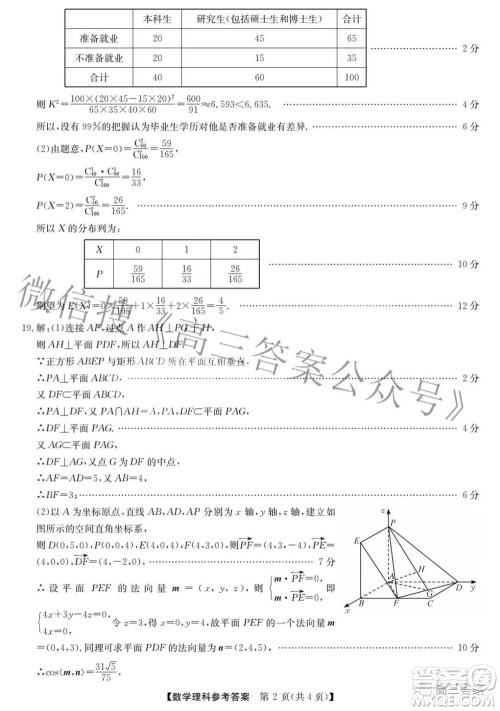 本科生 研究生(包括硕士生和博士生) 合计
准备就业 20 45 65
不准备就业 20 15 35
合计 40 60 100
2分
则K²=100×(20×45-15×20)²/65×35×40×60=600/91≈6.593<6.635. 4分
所以,没有99%的把握认为毕业生学历对他是否准备就业有差异. 6分
(2)由题意,P(X=0)=
59/165
P(X=1)=
16/33
P(X=2)=
26/165. 9分
所以X的分布列为:
X 0 1 2
P 59/165 16/33 26/165
10分
期望为E(X)=0×59/165+1×16/33+2×26/165=4/5. 12分
19.解:(1)连接AP,过点A作AH⊥PG于H,
∴AH⊥平面PDF,所以AH⊥DF.
∵正方形ABEP与矩形ABCD所在平面互相垂直.
∴PA⊥平面ABCD, 2分
又DF⊂平面ABCD,
∴DF⊥PA,又PA∩AH=A,PA⊂平面PAG,AH⊂平面PAG,
∴DF⊥平面PAG. 4分
又AG⊂平面PAG,
∴DF⊥AG,又点G为DF的中点,
∴AF=AD=5,又AB=4,
∴BF=3; 6分
(2)以A为坐标原点,直线AB,AD,AP分别为x轴,y轴,z轴,建立如
图所示的空间直角坐标系,
则D(0,5,0),P(0,0,4),E(4,0,4),F(4,3,0),PF=(4,3,-4),PE=
(4,0,0),DF=(4,-2,0), 7分
∴设平面PEF的法向量m=(x,y,z),则{m·PF=0, m·PE=0, 即
{4x+3y-4z=0, 4x=0, 令z=3,得x=0,y=4,故平面PEF的一个法向量m
=(0,4,3).同理可求平面PDF的法向量 10分
∴cos⟨m,n⟩=31√5/75.
z
P
E
H
A
D
y
G
B
F
C
x
【数学理科参考答案 第2页(共4页)】
微信搜《高三答案公众号》
高三答案